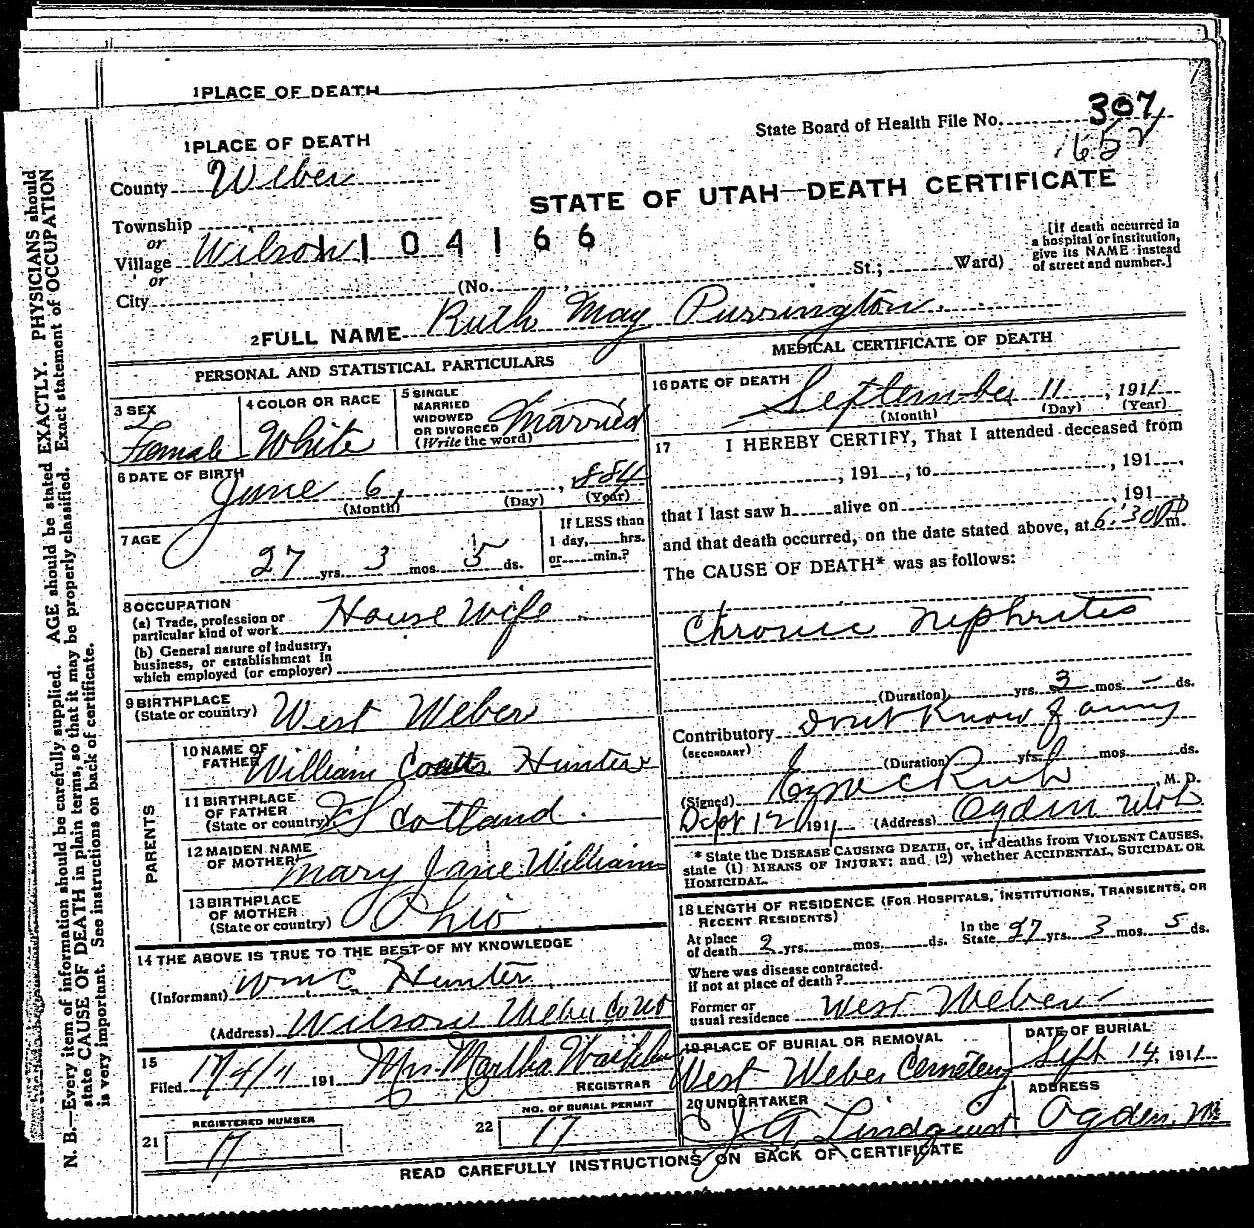 1 PLACE OF DEATH
1 PLACE OF DEATH
State Board of Health File No. 307
County Weber
STATE OF UTAH—DEATH CERTIFICATE
Township
or
Village Wilson 1104166
or
City (No. St.; Ward)
[If death occurred in a hospital or institution, give its NAME instead of street and number.]
2 FULL NAME Ruth May Purrington.
PERSONAL AND STATISTICAL PARTICULARS
3 SEX
Female
4 COLOR OR RACE
White
5 SINGLE
MARRIED
WIDOWED
OR DIVORCED
(Write the word)
Married
6 DATE OF BIRTH
June 6, 884
(Month) (Day) (Year)
7 AGE
27 yrs. 3 mos. 5 ds.
If LESS than
1 day, hrs.
or min.?
8 OCCUPATION
(a) Trade, profession or
particular kind of work House Wife
(b) General nature of industry,
business, or establishment in
which employed (or employer)
9 BIRTHPLACE
(State or country) West Weber
PARENTS
10 NAME OF
FATHER William Coatts Hunter
11 BIRTHPLACE
OF FATHER
(State or country) Scotland.
12 MAIDEN NAME
OF MOTHER Mary Jane William
13 BIRTHPLACE
OF MOTHER
(State or country) Ohio
14 THE ABOVE IS TRUE TO THE BEST OF MY KNOWLEDGE
(Informant) Wm C. Hunter
(Address) Wilson Weber Co Ut
15
Filed 191 Mrs. Martha
REGISTRAR
21 REGISTERED NUMBER
17
22 NO. OF BURIAL PERMIT
17
MEDICAL CERTIFICATE OF DEATH
16 DATE OF DEATH
September 11, 1911
(Month) (Day) (Year)
17 I HEREBY CERTIFY, That I attended deceased from
, 191 , to , 191 ,
that I last saw h alive on , 191 ,
and that death occurred, on the date stated above, at 6:30 P m.
The CAUSE OF DEATH* was as follows:
Chronic Nephrites
(Duration) yrs. 3 mos. - ds.
Contributory Dont Know of any
(SECONDARY)
(Duration) yrs. mos. ds.
(Signed) M. D.
Sept 12 1911 (Address) Ogden Utah
* State the DISEASE CAUSING DEATH, or, in deaths from VIOLENT CAUSES,
state (1) MEANS OF INJURY; and (2) whether ACCIDENTAL, SUICIDAL OR
HOMICIDAL.
18 LENGTH OF RESIDENCE (FOR HOSPITALS, INSTITUTIONS, TRANSIENTS, OR
RECENT RESIDENTS)
At place
of death 2 yrs. mos. ds.
In the
State 27 yrs. 3 mos. 5 ds.
Where was disease contracted,
if not at place of death?
Former or
usual residence West Weber
19 PLACE OF BURIAL OR REMOVAL
West Weber Cemetery
DATE OF BURIAL
Sept 14, 1911
20 UNDERTAKER
J A Lindquist
ADDRESS
Ogden,
READ CAREFULLY INSTRUCTIONS ON BACK OF CERTIFICATE
N. B.—Every item of information should be carefully supplied. AGE should be stated EXACTLY. PHYSICIANS should
state CAUSE OF DEATH in plain terms, so that it may be properly classified. Exact statement of OCCUPATION
is very important. See instructions on back of certificate.